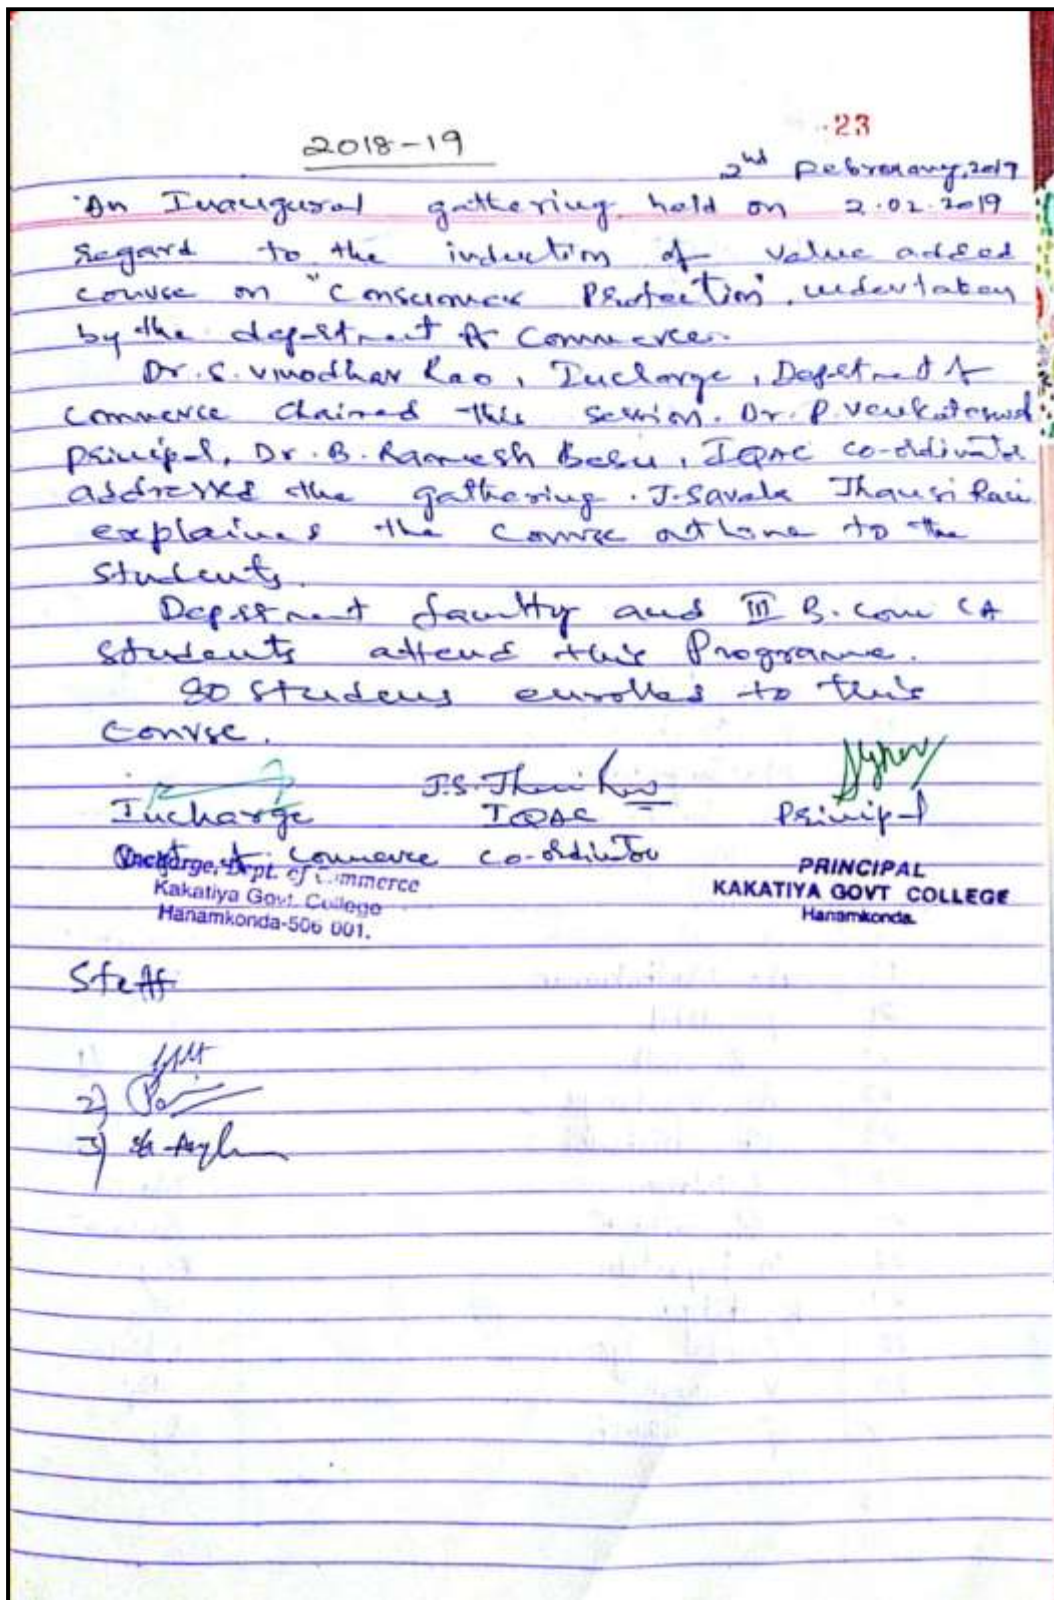 23
2018-19
2nd February, 2019
An Inaugural gathering held on 2.02.2019
regard to the induction of value added
course on "Consumer Protection", undertaken
by the department of Commerce.
Dr. S. Vinodhar Rao, Incharge, Department of
Commerce Chaired this session. Dr. P. Venkateswarlu
Principal, Dr. B. Ramesh Babu, IQAC co-ordinator
addressed the gathering. J. Savala Jhansi Rani
explained the course outline to the
students.
Department faculty and III B.com CA
students attend this Programme.
30 students enrolled to this
Course.
Incharge IQAC Principal
Commerce co-ordinator
Incharge, Dept. of Commerce
Kakatiya Govt. College
Hanamkonda-506 001.
PRINCIPAL
KAKATIYA GOVT COLLEGE
Hanamkonda.
Staff
2)
3)